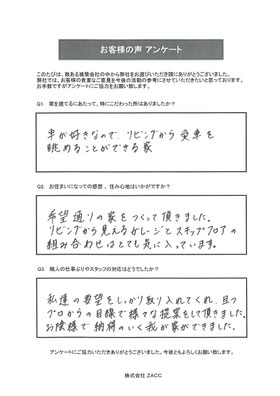 お客様の声 アンケート
このたびは、数ある建築会社の中から弊社をお選びいただき誠にありがとうございました。
弊社では、お客様の貴重なご意見を今後の活動の参考にさせていただきたいと思っております。
お手数ですがアンケートにご協力をお願い致します。
Q1. 家を建てるにあたって、特にこだわった所はありましたか?
車が好きなので、リビングから愛車を
眺めることができる家
Q2. お住まいになっての感想、住み心地はいかがですか?
希望通りの家をつくって頂きました。
リビングから見えるガレージとスキップフロアの
組み合わせはとても気に入っています。
Q3. 職人の仕事ぶりやスタッフの対応はどうでしたか?
私達の要望をしっかり取り入れてくれ、且つ
プロからの目線で様々な提案をして頂きました。
お陰様で納得のいく我が家ができました。
アンケートにご協力いただきありがとうございました。今後ともよろしくお願い致します。
株式会社 ZACC